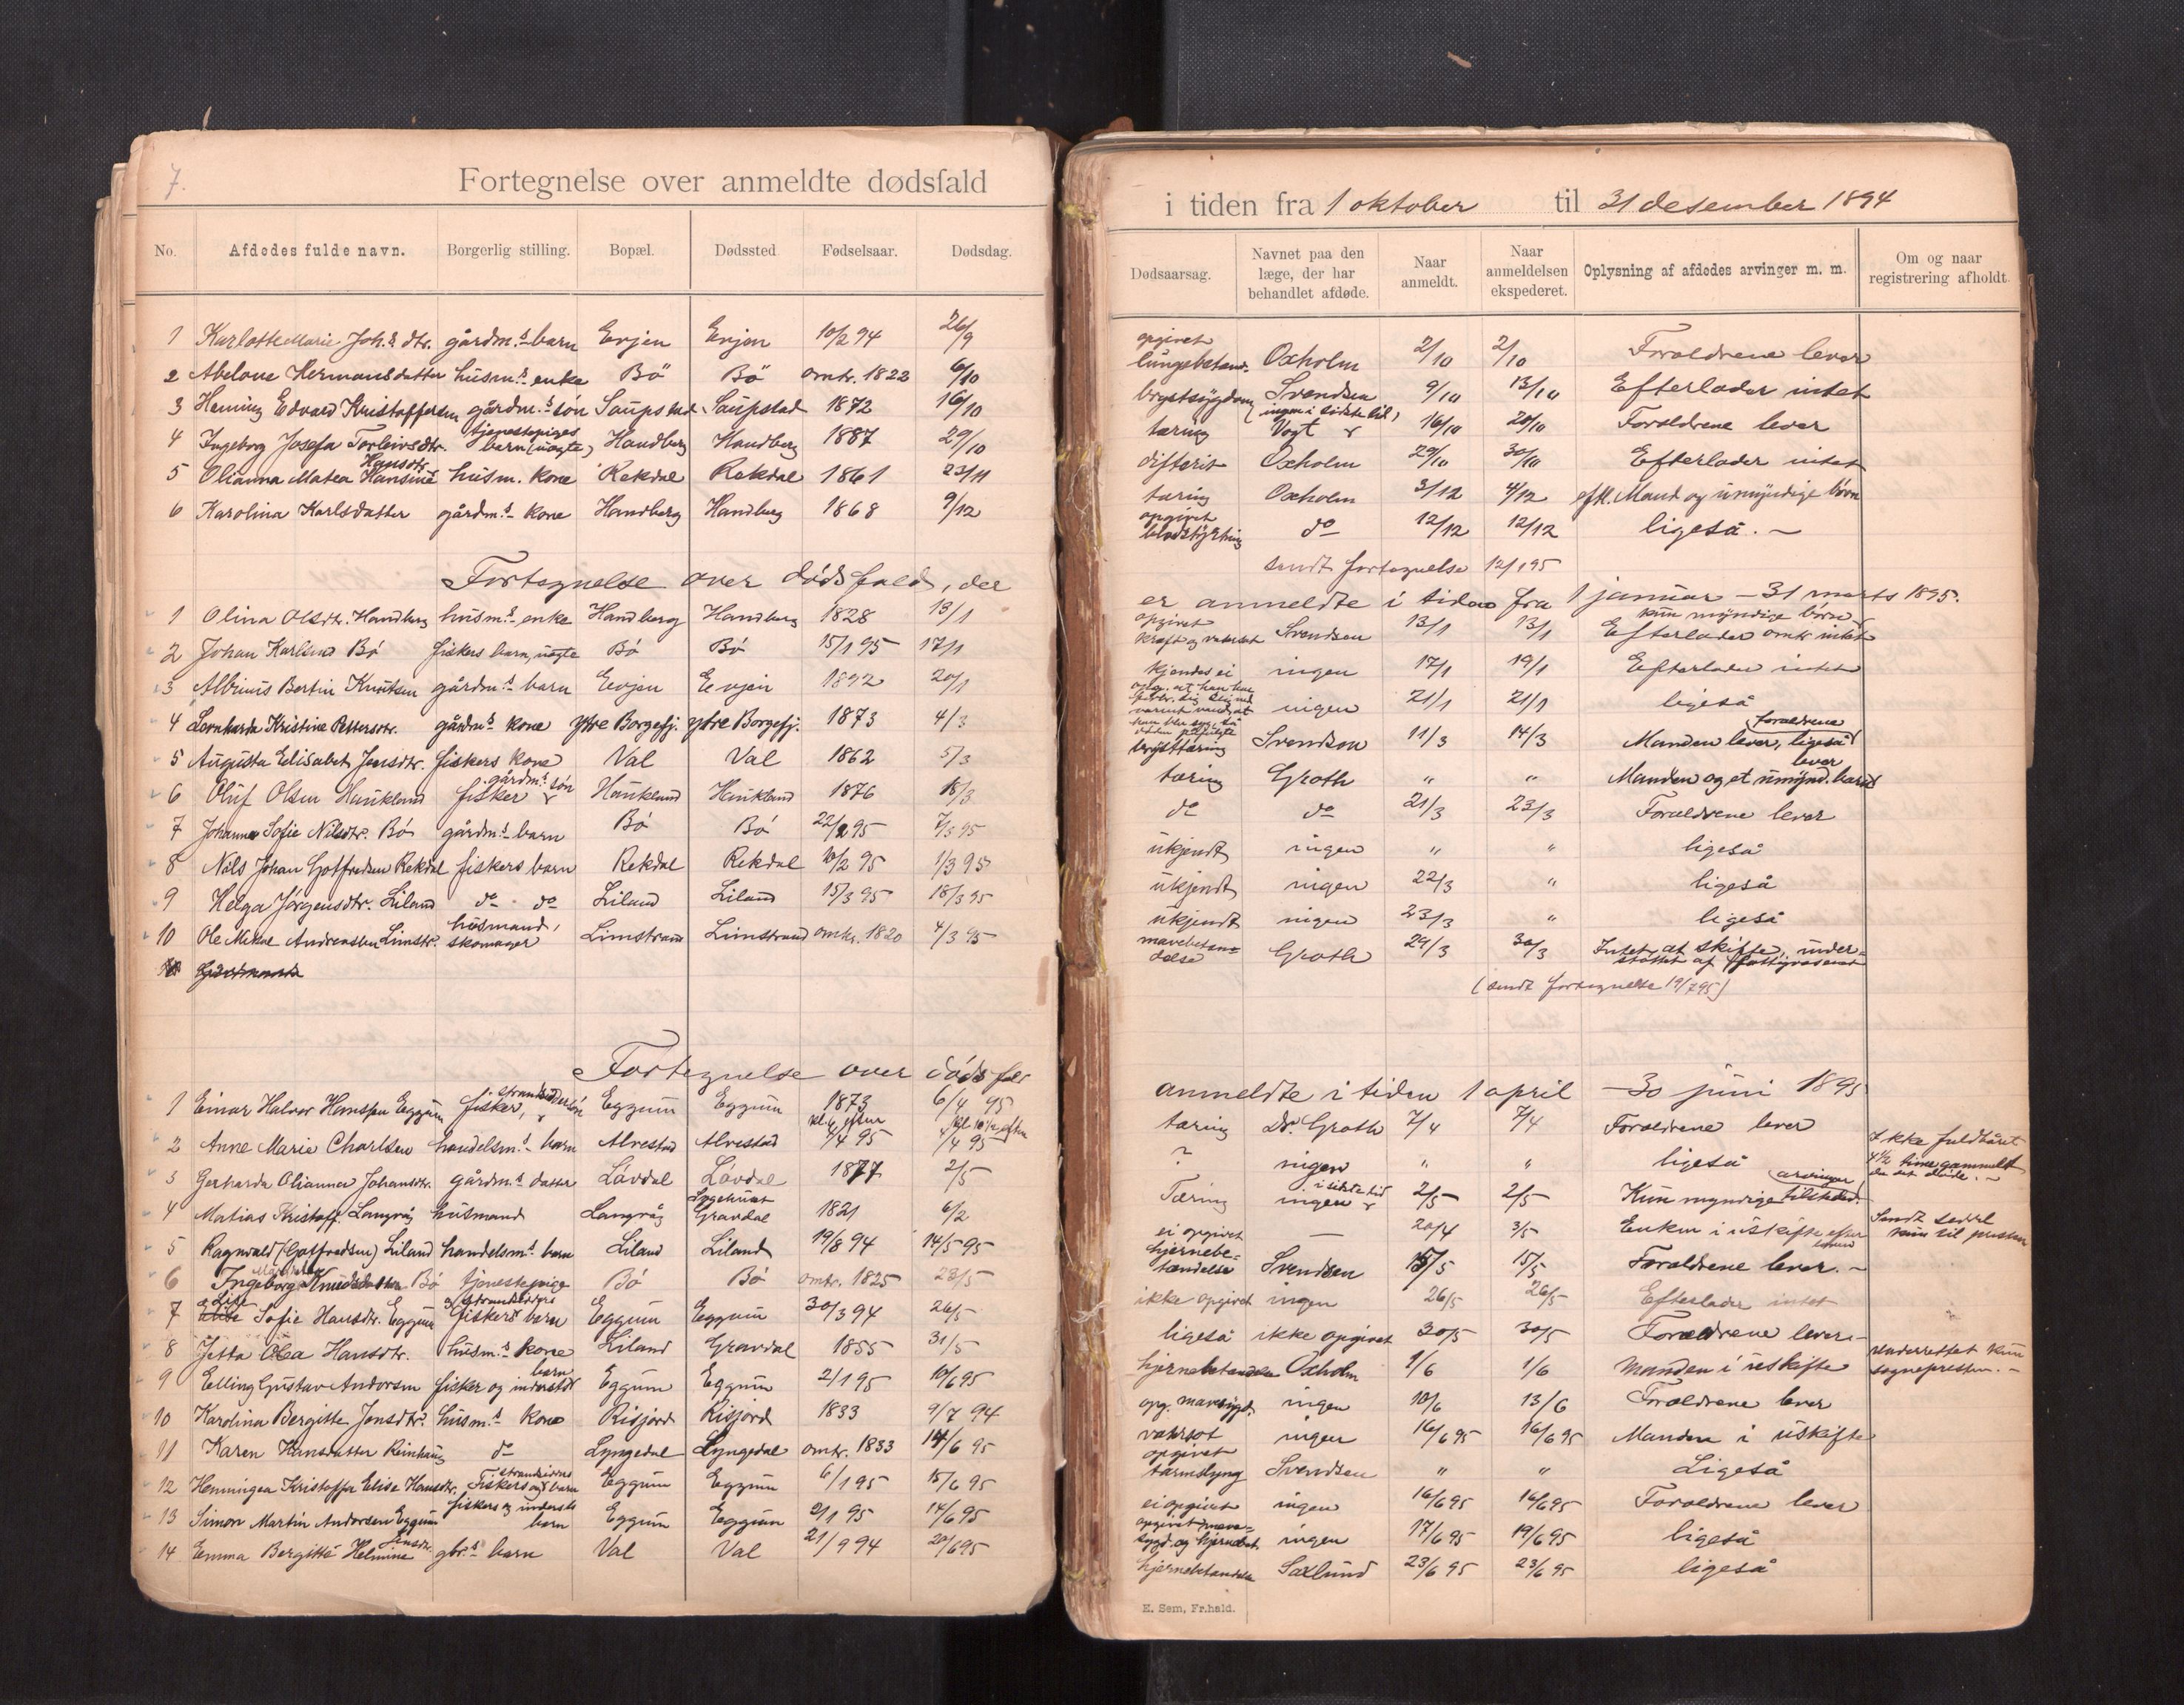 7.
Fortegnelse over anmeldte dødsfald
No. Afdødes fulde navn. Borgerlig stilling. Bopæl. Dødssted Fødselsaar. Dødsdag.
1 Karlotte Marie Joh.s dtr. gårdm.s barn Evjen Evjen 10/2 94 26/9
2 Abelone Hermansdatter husm.s enke Bö Bö omtr. 1822 6/10
3 Hening Edvard Kristoffersen gårdm.s søn Saupstad Saupstad 1872 16/10
4 Ingeborg Josefa Torleivsdtr. tjenestepiges barn (uægte) Handberg Handberg 1887 29/10
5 Olianna Matea Hansine Hansdtr. husm. kone Rekdal Rekdal 1861 23/11
6 Karolina Karlsdatter gårdm.s kone Handberg Handberg 1868 9/12
Fortegnelse over dödsfald, der
1 Olina Olsdtr. Handberg husm.s enke Handberg Handberg 1828 13/1
2 Johan Karlsen Bö fiskers barn, uægte Bö Bö 15/1 95 17/1
3 Albinus Bertin Knutsen gårdm.s barn Evjen Evjen 1892 20/1
4 Leonharda Kristine Pettersdtr. gårdm.s kone ytre Borgefj. ytre Borgefj. 1873 4/3
5 Augusta Elisabet Jensdtr. fiskers kone Val Val 1862 5/3
6 Oluf Olsen Haukland fisker gårdm.s søn Haukland Haukland 1876 18/3
7 Johanna Sofie Nilsdtr. Bö gårdm.s barn Bö Bö 22/2 95 7/3 95
8 Nils Johan Gotfredsen Rekdal fiskers barn Rekdal Rekdal 10/2 95 1/3 95
9 Helga Jörgensdtr. Liland do do Liland Liland 15/3 95 18/3 95
10 Ole Mikal Andreassen Limstr. husmand, skomager Limstrand Limstrand omtr. 1820 4/3 95
Fortegnelse over dödsfald
1 Einar Halvor Hansen Eggum fisker, strandsiddersön Eggum Eggum 1873 6/4 95
2 Anne Marie Charlsen handelsm.s barn Alvestad Alvestad 4/4 95 4/4 95
3 Gerharda Olianna Johansdtr. gårdm.s datter Lövdal Lövdal 1877 2/5
4 Matias Kristoff. Langvåg husmand Langvåg Sygehuset Gravdal 1821 6/2
5 Ragnvald (Gotfredsen) Liland handelsm.s barn Liland Liland 19/8 94 14/5 95
6 Ingeborg Knudsdatter Bö tjenestepige Bö Bö omtr. 1825 23/5
7 Sofie Hansdtr. Eggum strandsidders og fiskers barn Eggum Eggum 30/3 94 26/5
8 Jetta Olea Hansdtr. husm.s kone Liland Gravdal 1855 31/5
9 Elling Gustav Andorsen fisker og inderst barn Eggum Eggum 2/1 95 10/6 95
10 Karolina Bergitte Jensdtr. husm.s kone Risjord Risjord 1833 9/7 94
11 Karen Hansdatter Reinhaug do Lyngedal Lyngedal omtr. 1833 14/6 95
12 Henningea Kristoffa Elise Hansdtr. strandsidders fiskers og barn Eggum Eggum 6/1 95 15/6 95
13 Simon Martin Andorsen Eggum fiskers og inderst barn Eggum Eggum 2/1 95 14/6 95
14 Emma Bergitte Helmine Jensdtr. gbr.s barn Val Val 21/9 94 20/6 95
i tiden fra 1 oktober til 31 desember 1894
Dødsaarsag. Navnet paa den læge, der har behandlet afdøde. Naar anmeldt. Naar anmeldelsen ekspederet. Oplysning af afdødes arvinger m. m. Om og naar registrering afholdt.
opgivet lungebetænd. Oxholm 2/10 2/10 Forældrene lever
brystsygdom Svendsen 9/10 13/10 Efterlader intet
tæring (ingen i sidste tid) Vogt 16/10 20/10 Forældrene lever
difterit Oxholm 29/10 30/10 Efterlader intet
tæring Oxholm 3/12 4/12 eftl. Mand og umyndige børn
opgivet blodstyrtning do 12/12 12/12 ligeså. –
sendt fortegnelse 12/1 95
er anmeldte i tiden fra 1 januar – 31 marts 1895.
opgivet kræft og vatersot Svendsen 13/1 13/1 kun myndige børn Efterlader omtr intet
kjendes ei ingen 17/1 19/1 Efterlader intet
ingen 21/1 21/1 ligeså
brysttæring Svendsen 11/3 14/3 Manden lever, forældrene ligeså
tæring Groth " " Manden og et umynd. barn lever
do do 21/3 23/3 Forældrene lever
ukjendt ingen " " ligeså
ukjendt ingen 22/3 " ligeså
ukjendt ingen 23/3 " ligeså
mavebetændelse Groth 29/3 30/3 Intet at skifte, understøttet af fattigvæsenet
(sendt fortegnelse 19/7 95)
anmeldte i tiden 1 april – 30 juni 1895
tæring Dr. Groth 7/4 7/4 Forældrene lever
? ingen " " ligeså Ikke fuldbåret 4½ time gammelt da det döde. –
Tæring ingen i sidste tid 2/5 2/5 Kun myndige arvinger tilstede.
ei opgivet — 20/4 3/5 Enken i uskifte Sendt seddel kun til presten
hjernebetændelse Svendsen 15/5 15/5 Forældrene lever. –
ikke opgivet ingen 26/5 26/5 Efterlader intet
ligeså ikke opgivet 30/5 30/5 Forældrene lever –
hjernebetændelse Oxholm 1/6 1/6 Manden i uskifte Underrettet kun sognepresten. –
opg. mavesygd. ingen 10/6 13/6 Forældrene lever
vatersot ingen 16/6 95 16/6 95 Manden i uskifte
opgivet tarmslyng Svendsen " " Ligeså
ei opgivet ingen 16/6 95 16/6 95 Forældrene lever
opgivet mavesygd. og hjernebet. ingen 17/6 95 19/6 95 ligeså
hjernebetændelse Saxlund 23/6 95 23/6 95 ligeså
E. Sem, Fr.hald.